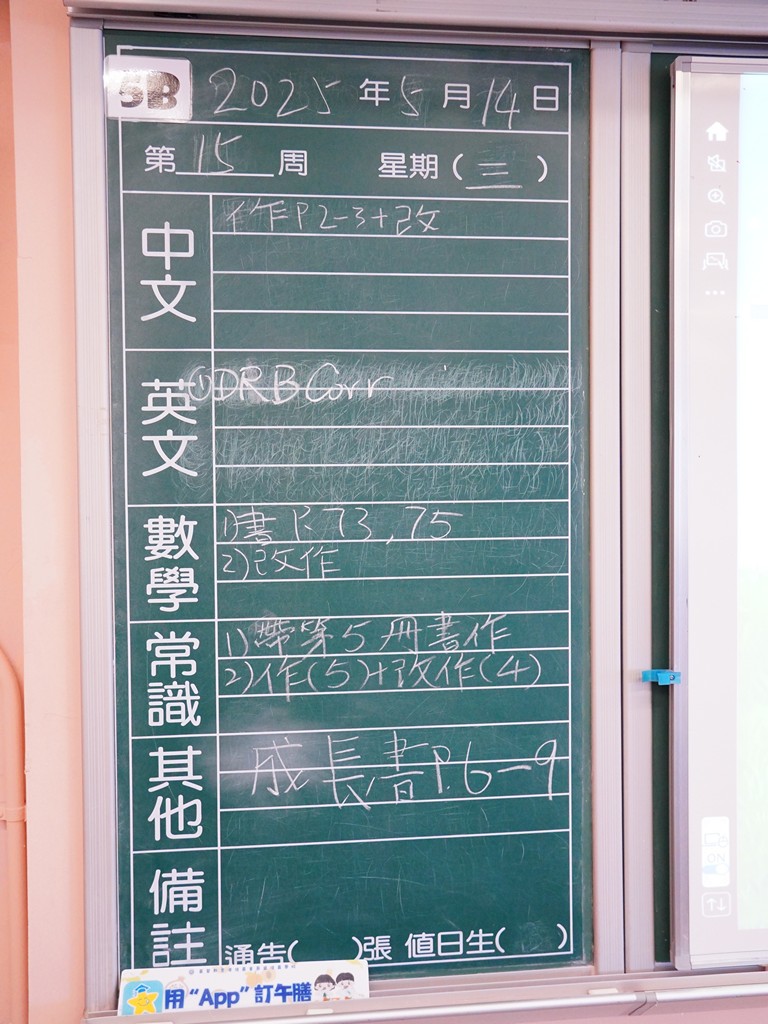 5B 2025年5月14日
第15周 星期(三)
中文
作P2-3+改
英文
①DRB Corr
數學
1)書P.73,75
2)改作
常識
1)帶第5冊書作
2)作(5)+改作(4)
其他
成長書P.6-9
備註
通告( )張 值日生( )
用“App”訂午膳
ON